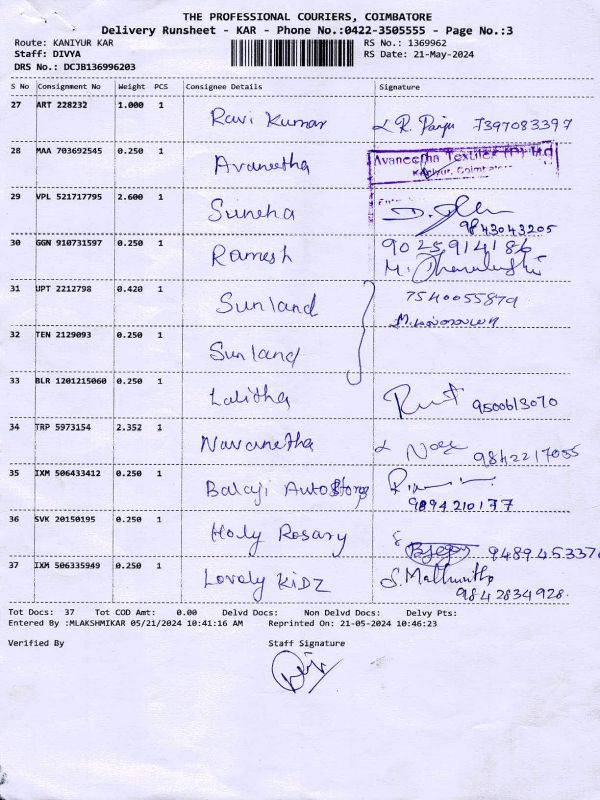 THE PROFESSIONAL COURIERS, COIMBATORE
Delivery Runsheet - KAR - Phone No.:0422-3505555 - Page No.:3
Route: KANIYUR KAR RS No.: 1369962
Staff: DIVYA RS Date: 21-May-2024
DRS No.: DCJB136996203
S No Consignment No Weight PCS Consignee Details Signature
27 ART 228232 1.000 1 Ravi Kumar 7397083397
28 MAA 703692545 0.250 1 Avaneetha Avaneetha Textiles (P) Ltd
Kaniyur, Coimbatore
29 VPL 521717795 2.600 1 Suneha
9843043205
30 GGN 910731597 0.250 1 Ramesh 9025914186
31 UPT 2212798 0.420 1 Sunland 7540055879
32 TEN 2129093 0.250 1 Sunland
33 BLR 1201215060 0.250 1 Lalitha 9500613070
34 TRP 5973154 2.352 1 Navanetha 9842217055
35 IXM 506433412 0.250 1 Balaji Auto Storas
9894210177
36 SVK 20150195 0.250 1 Holy Rosary 9489453376
37 IXM 506335949 0.250 1 Lovely KiDZ
9842834928.
Tot Docs: 37 Tot COD Amt: 0.00 Delvd Docs: Non Delvd Docs: Delvy Pts:
Entered By :MLAKSHMIKAR 05/21/2024 10:41:16 AM Reprinted On: 21-05-2024 10:46:23
Verified By Staff Signature